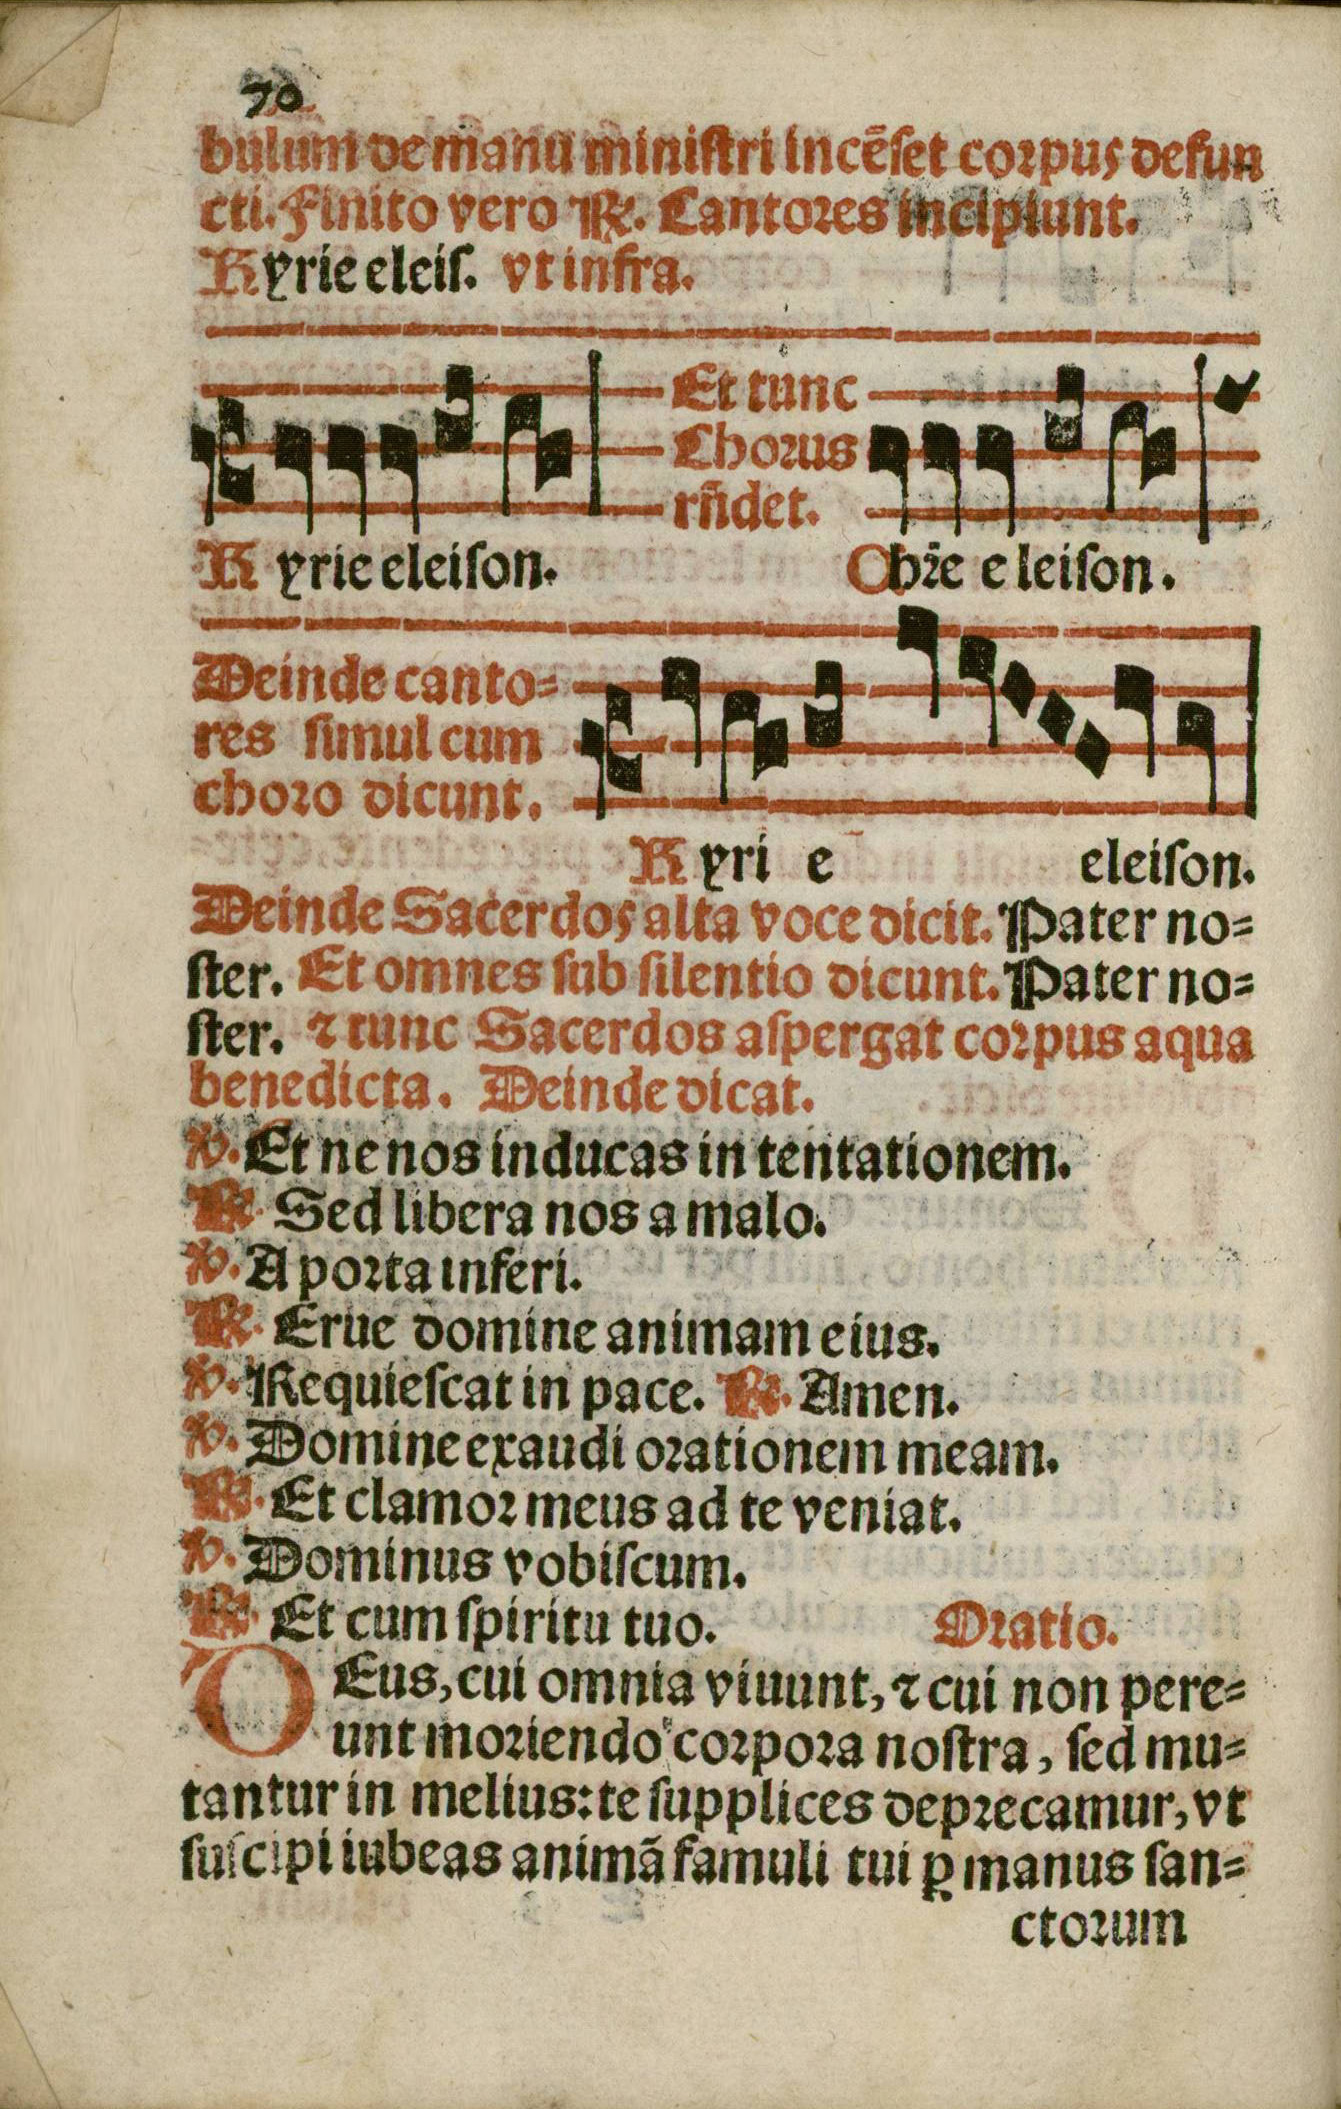 70
bulum de manu ministri incēset corpus defun
cti. Finito vero ℟. Cantores incipiunt.
Kyrie eleis. vt infra.
Et tunc
Chorus
rñdet.
Kyrie eleison. Chr̄e eleison.
Deinde canto=
res simul cum
choro dicunt.
Kyri e eleison.
Deinde Sacerdos alta voce dicit. Pater no=
ster. Et omnes sub silentio dicunt. Pater no=
ster. ⁊ tunc Sacerdos aspergat corpus aqua
benedicta. Deinde dicat.
℣. Et ne nos inducas in tentationem.
℟. Sed libera nos a malo.
℣. A porta inferi.
℟. Erue domine animam eius.
℣. Requiescat in pace. ℟. Amen.
℣. Domine exaudi orationem meam.
℟. Et clamor meus ad te veniat.
℣. Dominus vobiscum.
℟. Et cum spiritu tuo. Oratio.
DEus, cui omnia viuunt, ⁊ cui non pere=
unt moriendo corpora nostra, sed mu=
tantur in melius: te supplices deprecamur, vt
suscipi iubeas animã famuli tui ꝑ manus san=
ctorum